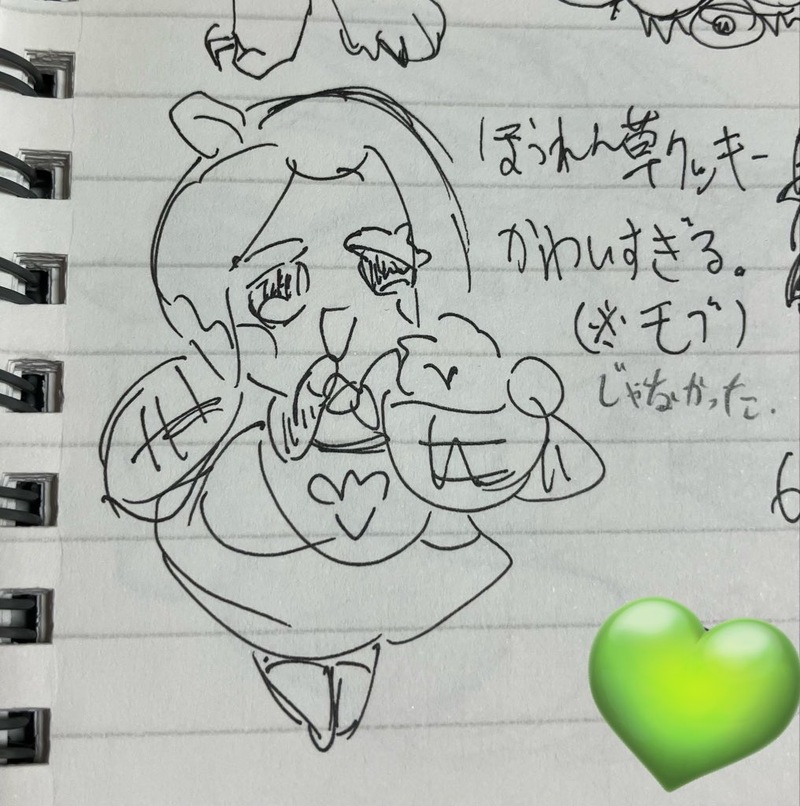 ほうれん草クッキー
かわいすぎる。
(※モブ)
じゃなかった.